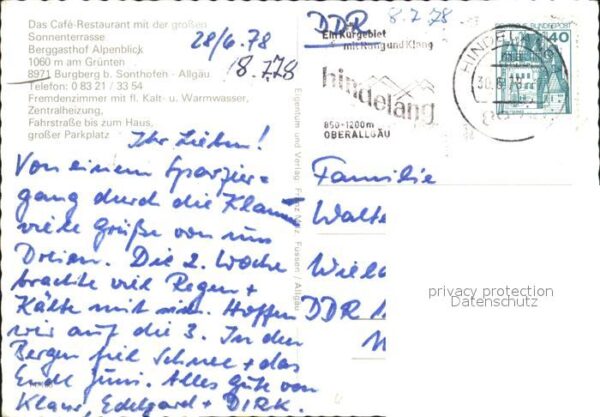 Das Café-Restaurant mit der großen
Sonnenterrasse
Berggasthof Alpenblick
1060 m am Grünten
8971 Burgberg b. Sonthofen - Allgäu
Telefon: 0 83 21 / 33 54
Fremdenzimmer mit fl. Kalt- u. Warmwasser,
Zentralheizung,
Fahrstraße bis zum Haus,
großer Parkplatz
28/6.78
8.7.78
Ihr Lieben!
Von einem Sparzier=
gang durch die Klamm
viele Grüße von uns
Dreien. Die 2. Woche
brachte viel Regen +
Kälte mit sich. Hoffen
wir auf die 3. In den
Bergen fiel Schnee + das
Ende Juni. Alles gute von
Klaus, Edelgard + DIRK.
Eigentum und Verlag Franz Milz, Füssen / Allgäu
DDR
8.7.78
Ein Kurgebiet
mit Klang
hindelang
850-1200m
OBERALLGÄU
HINDELANG
30.6.78
DEUTSCHE BUNDESPOST
40
Familie
Walte
DDR
privacy protection
Datenschutz